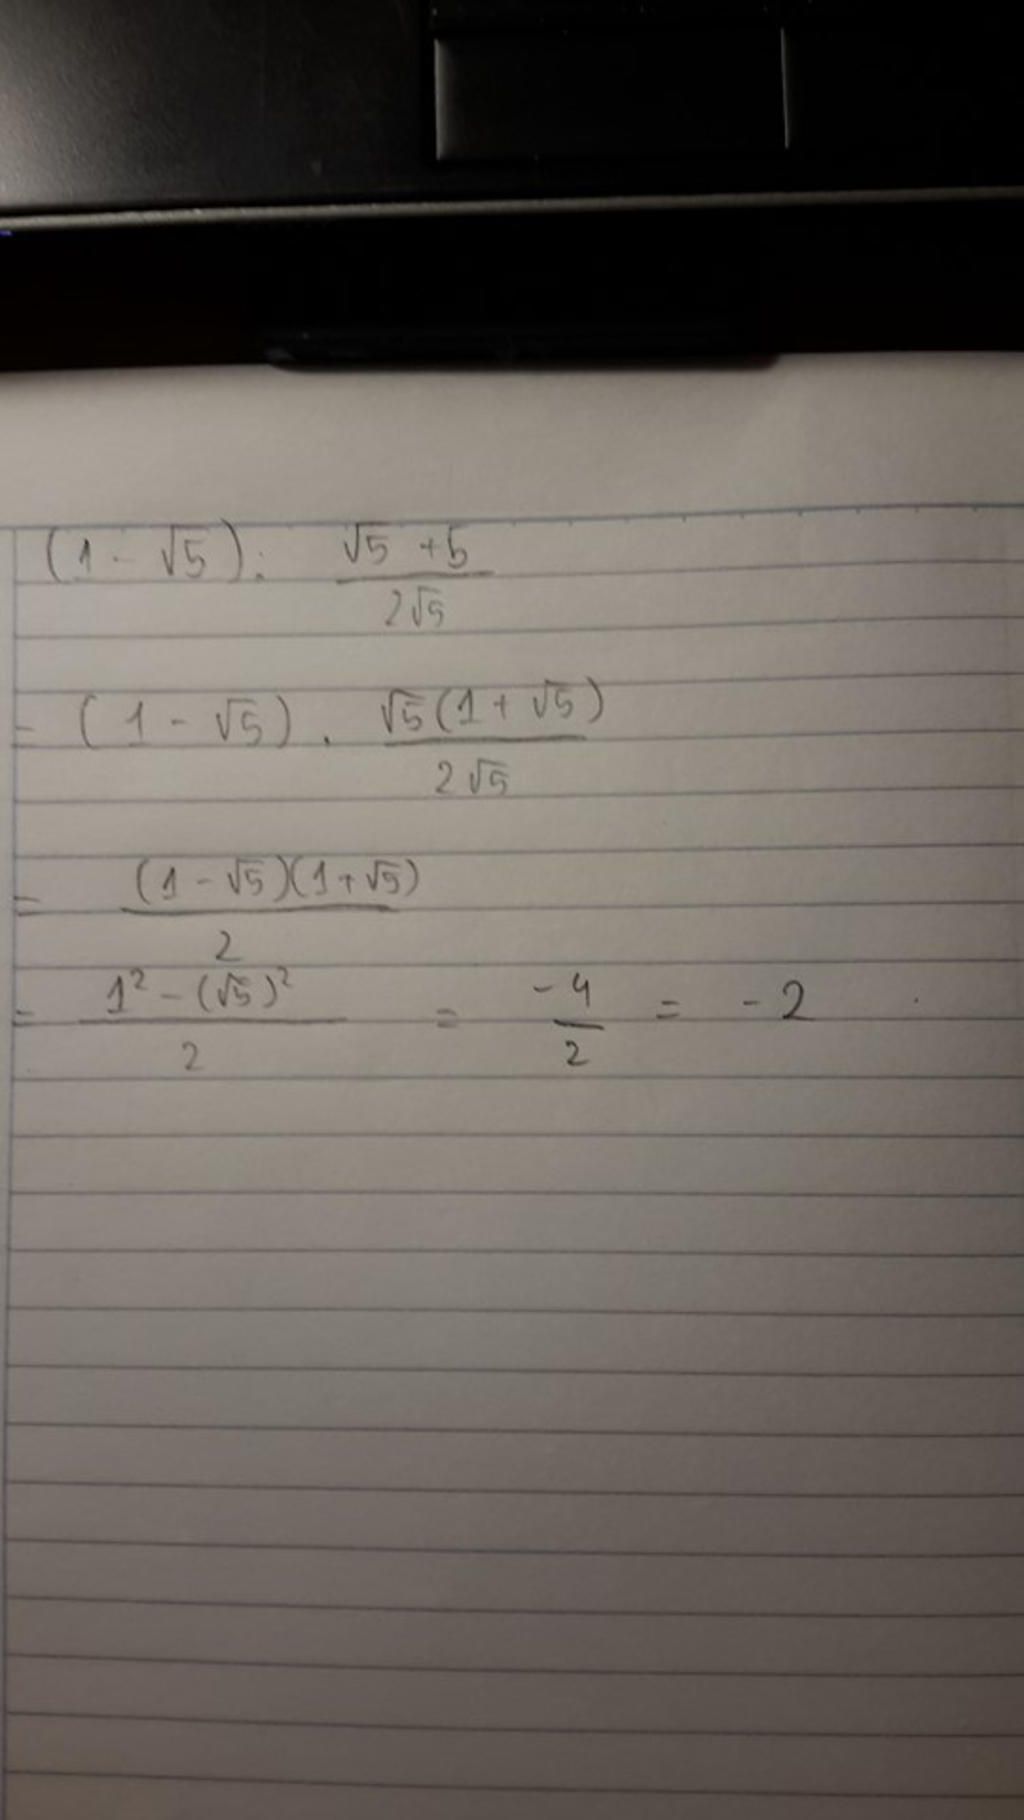 (1 - √5) . (√5 + 5)/(2√5)
= (1 - √5) . (√5(1 + √5))/(2√5)
= ((1 - √5)(1 + √5))/2
= (1² - (√5)²)/2 = -4/2 = -2